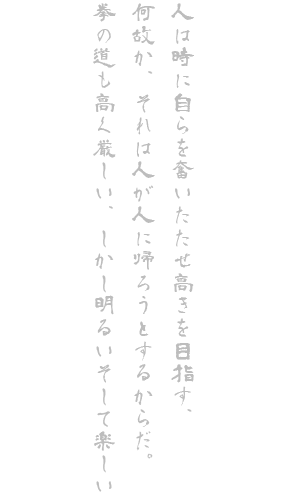 人は時に自らを奮いたたせ高きを目指す、
何故か、それは人が人に帰ろうとするからだ。
拳の道も高く厳しい、しかし明るいそして楽しい